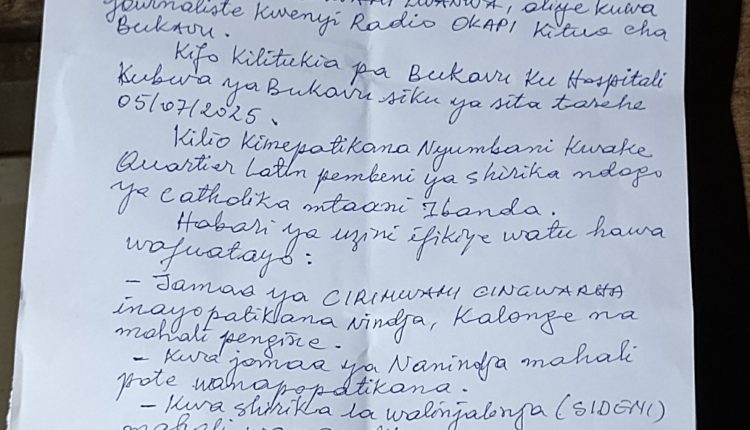 journaliste kwenyi Radio OKAPI kituo cha
Bukavu.
Kifo kilitukia pa Bukavu ku Hospitali
Kubwa ya Bukavu siku ya sita tarehe
05/07/2025.
Kilio kimepatikana Nyumbani kwake
Quartier Latin pembeni ya shirika ndogo
ya catholika mtaani Ibanda.
Habari ya uzini ifikiye watu hawa
wafuatayo :
- Jamaa ya CIRIMWAMI CINGWARHA
inayopatikana Nindja, Kalonge na
mahali pengine.
- Kwa jamaa ya Nanindja mahali
pote wanapopatikana.
- Kwa shirika la walinjalonja (SIDEMI)